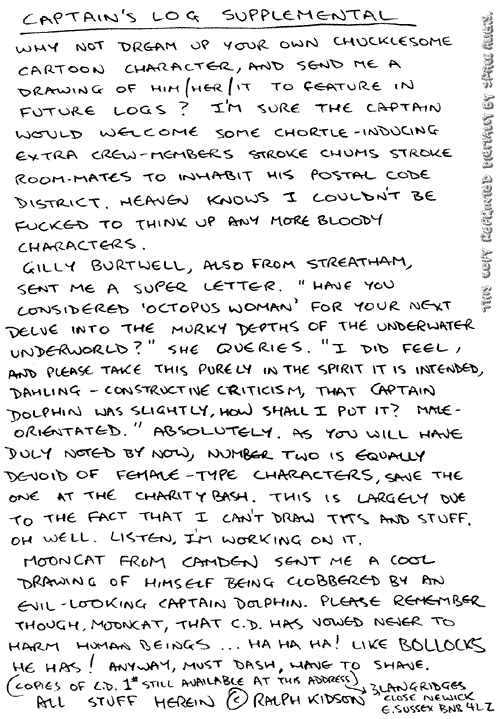 CAPTAIN'S LOG SUPPLEMENTAL
WHY NOT DREAM UP YOUR OWN CHUCKLESOME
CARTOON CHARACTER, AND SEND ME A
DRAWING OF HIM/HER/IT TO FEATURE IN
FUTURE LOGS? I'M SURE THE CAPTAIN
WOULD WELCOME SOME CHORTLE-INDUCING
EXTRA CREW-MEMBERS STROKE CHUMS STROKE
ROOM-MATES TO INHABIT HIS POSTAL CODE
DISTRICT. HEAVEN KNOWS I COULDN'T BE
FUCKED TO THINK UP ANY MORE BLOODY
CHARACTERS.
GILLY BURTWELL, ALSO FROM STREATHAM,
SENT ME A SUPER LETTER. "HAVE YOU
CONSIDERED 'OCTOPUS WOMAN' FOR YOUR NEXT
DELVE INTO THE MURKY DEPTHS OF THE UNDERWATER
UNDERWORLD?" SHE QUERIES. "I DID FEEL,
AND PLEASE TAKE THIS PURELY IN THE SPIRIT IT IS INTENDED,
DAHLING - CONSTRUCTIVE CRITICISM, THAT CAPTAIN
DOLPHIN WAS SLIGHTLY, HOW SHALL I PUT IT? MALE-
ORIENTATED." ABSOLUTELY. AS YOU WILL HAVE
DULY NOTED BY NOW, NUMBER TWO IS EQUALLY
DEVOID OF FEMALE-TYPE CHARACTERS, SAVE THE
ONE AT THE CHARITY BASH. THIS IS LARGELY DUE
TO THE FACT THAT I CAN'T DRAW TITS AND STUFF.
OH WELL. LISTEN, I'M WORKING ON IT.
MOONCAT FROM CAMDEN SENT ME A COOL
DRAWING OF HIMSELF BEING CLOBBERED BY AN
EVIL-LOOKING CAPTAIN DOLPHIN. PLEASE REMEMBER
THOUGH, MOONCAT, THAT C.D. HAS VOWED NEVER TO
HARM HUMAN BEINGS... HA HA HA! LIKE BOLLOCKS
HE HAS! ANYWAY, MUST DASH, HAVE TO SHAVE.
(COPIES OF C.D. 1st STILL AVAILABLE AT THIS ADDRESS)
ALL STUFF HEREIN © RALPH KIDSON
3 LANGRIDGES
CLOSE NEWICK
E. SUSSEX BN8 4LZ
THIS COPY REPRINTED DIGITALLY BY